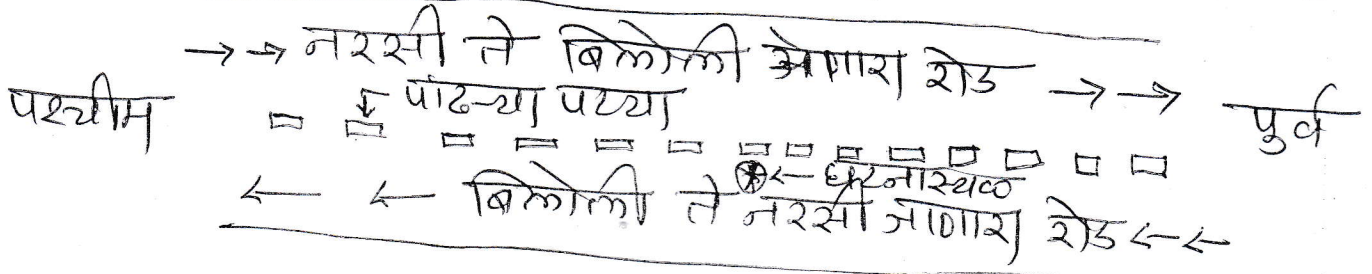 → → नरसी ते बिलोली येणारा रोड → →
पश्चीम
↓ पांढऱ्या पट्ट्या
पुर्व
← घटनास्थळ
← ← बिलोली ते नरसी जाणारा रोड ← ←